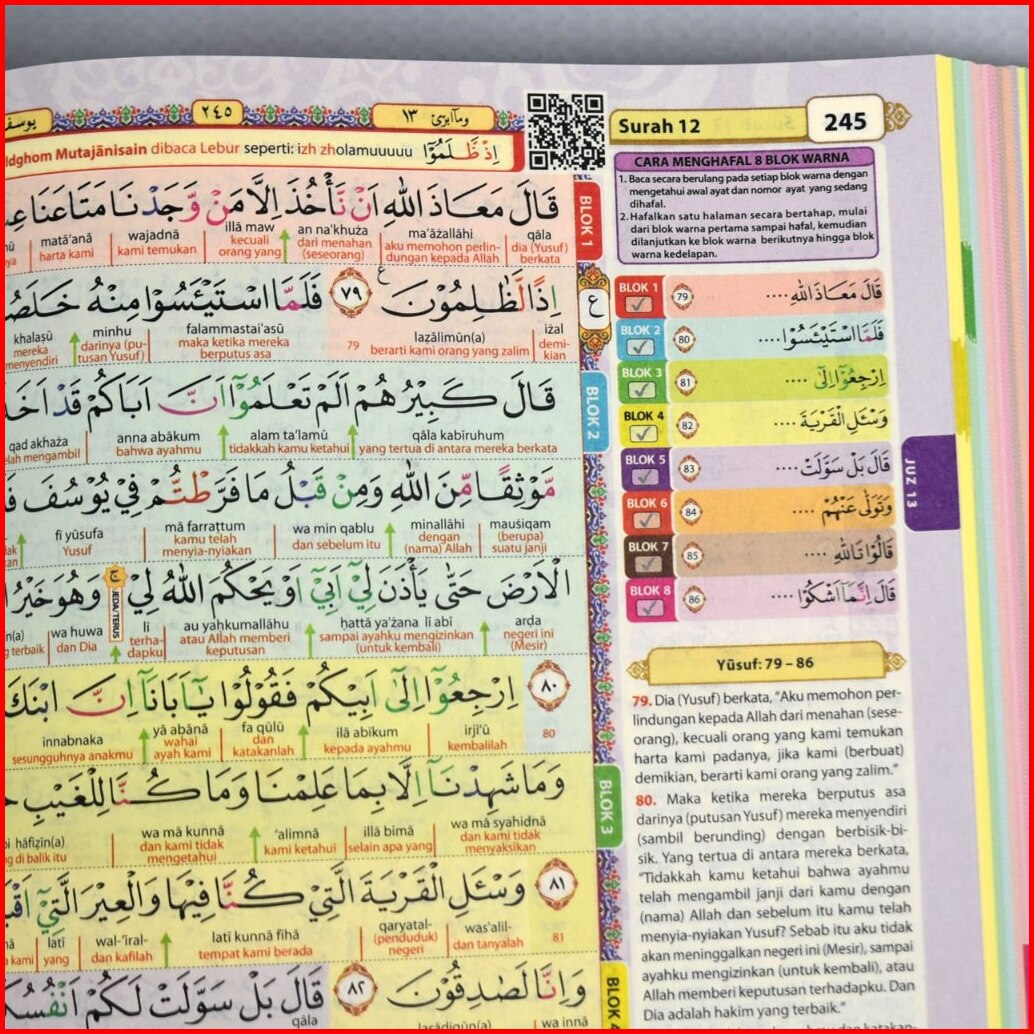 ٢٤٥
١٣
Surah 12
245
Idghom Mutajānisain dibaca Lebur seperti: izh zholamuuuuu اِذْ ظَّلَمُوْٓا
BLOK 1
قَالَ مَعَاذَ اللّٰهِ اَنْ نَّأْخُذَ اِلَّا مَنْ وَّجَدْنَا مَتَاعَنَا
qāla ma'āżallāhi an na'khuża illā maw wajadnā matā'anā
dia (Yusuf) berkata aku memohon perlin-dungan kepada Allah dari menahan (seseorang) kecuali orang yang kami temukan harta kami
اِذًا لَّظٰلِمُوْنَ ٧٩ فَلَمَّا اسْتَيْـَٔسُوْا مِنْهُ خَلَصُوْا
iżal laẓālimūn(a) falammastai'asū minhu khalaṣū
demi-kian berarti kami orang yang zalim 79 maka ketika mereka berputus asa darinya (pu-tusan Yusuf) mereka menyendiri
BLOK 2
قَالَ كَبِيْرُهُمْ اَلَمْ تَعْلَمُوْٓا اَنَّ اَبَاكُمْ قَدْ اَخَذَ
qāla kabīruhum alam ta'lamū anna abākum qad akhaża
yang tertua di antara mereka berkata tidakkah kamu ketahui bahwa ayahmu telah mengambil
مَّوْثِقًا مِّنَ اللّٰهِ وَمِنْ قَبْلُ مَا فَرَّطْتُّمْ فِيْ يُوْسُفَ
mauṡiqam minallāhi wa min qablu mā farraṭtum fī yūsufa
(berupa) suatu janji dengan (nama) Allah dan sebelum itu kamu telah menyia-nyiakan Yusuf
الْاَرْضَ حَتّٰى يَأْذَنَ لِيْٓ اَبِيْٓ اَوْ يَحْكُمَ اللّٰهُ لِيْ ۚ وَهُوَ خَيْرُ
JEDA/TERUS
arḍa ḥattā ya'żana lī abī au yaḥkumallāhu lī wa huwa
negeri ini (Mesir) sampai ayahku mengizinkan (untuk kembali) atau Allah memberi keputusan terha-dapku dan Dia terbaik
٨٠ اِرْجِعُوْٓا اِلٰٓى اَبِيْكُمْ فَقُوْلُوْا يٰٓاَبَانَآ اِنَّ ابْنَكَ
80 irji'ū ilā abīkum fa qūlū yā abānā innabnaka
kembalilah kepada ayahmu dan katakanlah wahai ayah kami sesungguhnya anakmu
BLOK 3
وَمَا شَهِدْنَآ اِلَّا بِمَا عَلِمْنَا وَمَا كُنَّا لِلْغَيْبِ
wa mā syahidnā illā bimā 'alimnā wa mā kunnā ḥāfiẓīn(a)
dan kami tidak menyaksikan selain apa yang kami ketahui dan kami tidak mengetahui di balik itu
٨١ وَسْـَٔلِ الْقَرْيَةَ الَّتِيْ كُنَّا فِيْهَا وَالْعِيْرَ الَّتِيْٓ
81 was'alil- qaryatal- latī kunnā fīhā wal-'īral- latī
dan tanyalah (penduduk) negeri tempat kami berada dan kafilah yang
BLOK 4
وَاِنَّا لَصٰدِقُوْنَ ٨٢ قَالَ بَلْ سَوَّلَتْ لَكُمْ اَنْفُسُكُمْ
wa innā laṣādiqūn(a) qāla
CARA MENGHAFAL 8 BLOK WARNA
1. Baca secara berulang pada setiap blok warna dengan
mengetahui awal ayat dan nomor ayat yang sedang
dihafal.
2. Hafalkan satu halaman secara bertahap, mulai
dari blok warna pertama sampai hafal, kemudian
dilanjutkan ke blok warna berikutnya hingga blok
warna kedelapan.
BLOK 1 79 قَالَ مَعَاذَ اللّٰهِ ....
BLOK 2 80 فَلَمَّا اسْتَيْـَٔسُوْا ....
BLOK 3 81 اِرْجِعُوْٓا اِلٰٓى ....
BLOK 4 82 وَسْـَٔلِ الْقَرْيَةَ ....
BLOK 5 83 قَالَ بَلْ سَوَّلَتْ ....
BLOK 6 84 وَتَوَلّٰى عَنْهُمْ ....
BLOK 7 85 قَالُوْا تَاللّٰهِ ....
BLOK 8 86 قَالَ اِنَّمَآ اَشْكُوْا ....
JUZ 13
Yūsuf: 79 – 86
79. Dia (Yusuf) berkata, "Aku memohon per-
lindungan kepada Allah dari menahan (sese-
orang), kecuali orang yang kami temukan
harta kami padanya, jika kami (berbuat)
demikian, berarti kami orang yang zalim."
80. Maka ketika mereka berputus asa
darinya (putusan Yusuf) mereka menyendiri
(sambil berunding) dengan berbisik-bi-
sik. Yang tertua di antara mereka berkata,
"Tidakkah kamu ketahui bahwa ayahmu
telah mengambil janji dari kamu dengan
(nama) Allah dan sebelum itu kamu telah
menyia-nyiakan Yusuf? Sebab itu aku tidak
akan meninggalkan negeri ini (Mesir), sampai
ayahku mengizinkan (untuk kembali), atau
Allah memberi keputusan terhadapku. Dan
Dia adalah hakim yang terbaik."